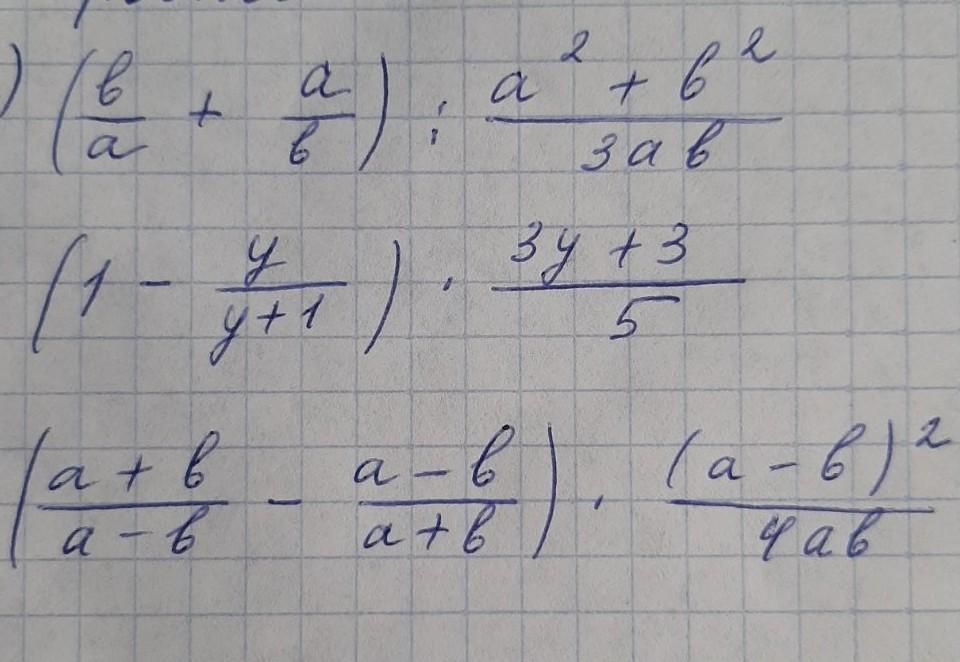 ) (b/a + a/b) : (a² + b²)/(3ab)
(1 - y/(y+1)) · (3y + 3)/5
((a + b)/(a - b) - (a - b)/(a + b)) · (a - b)²/(4ab)